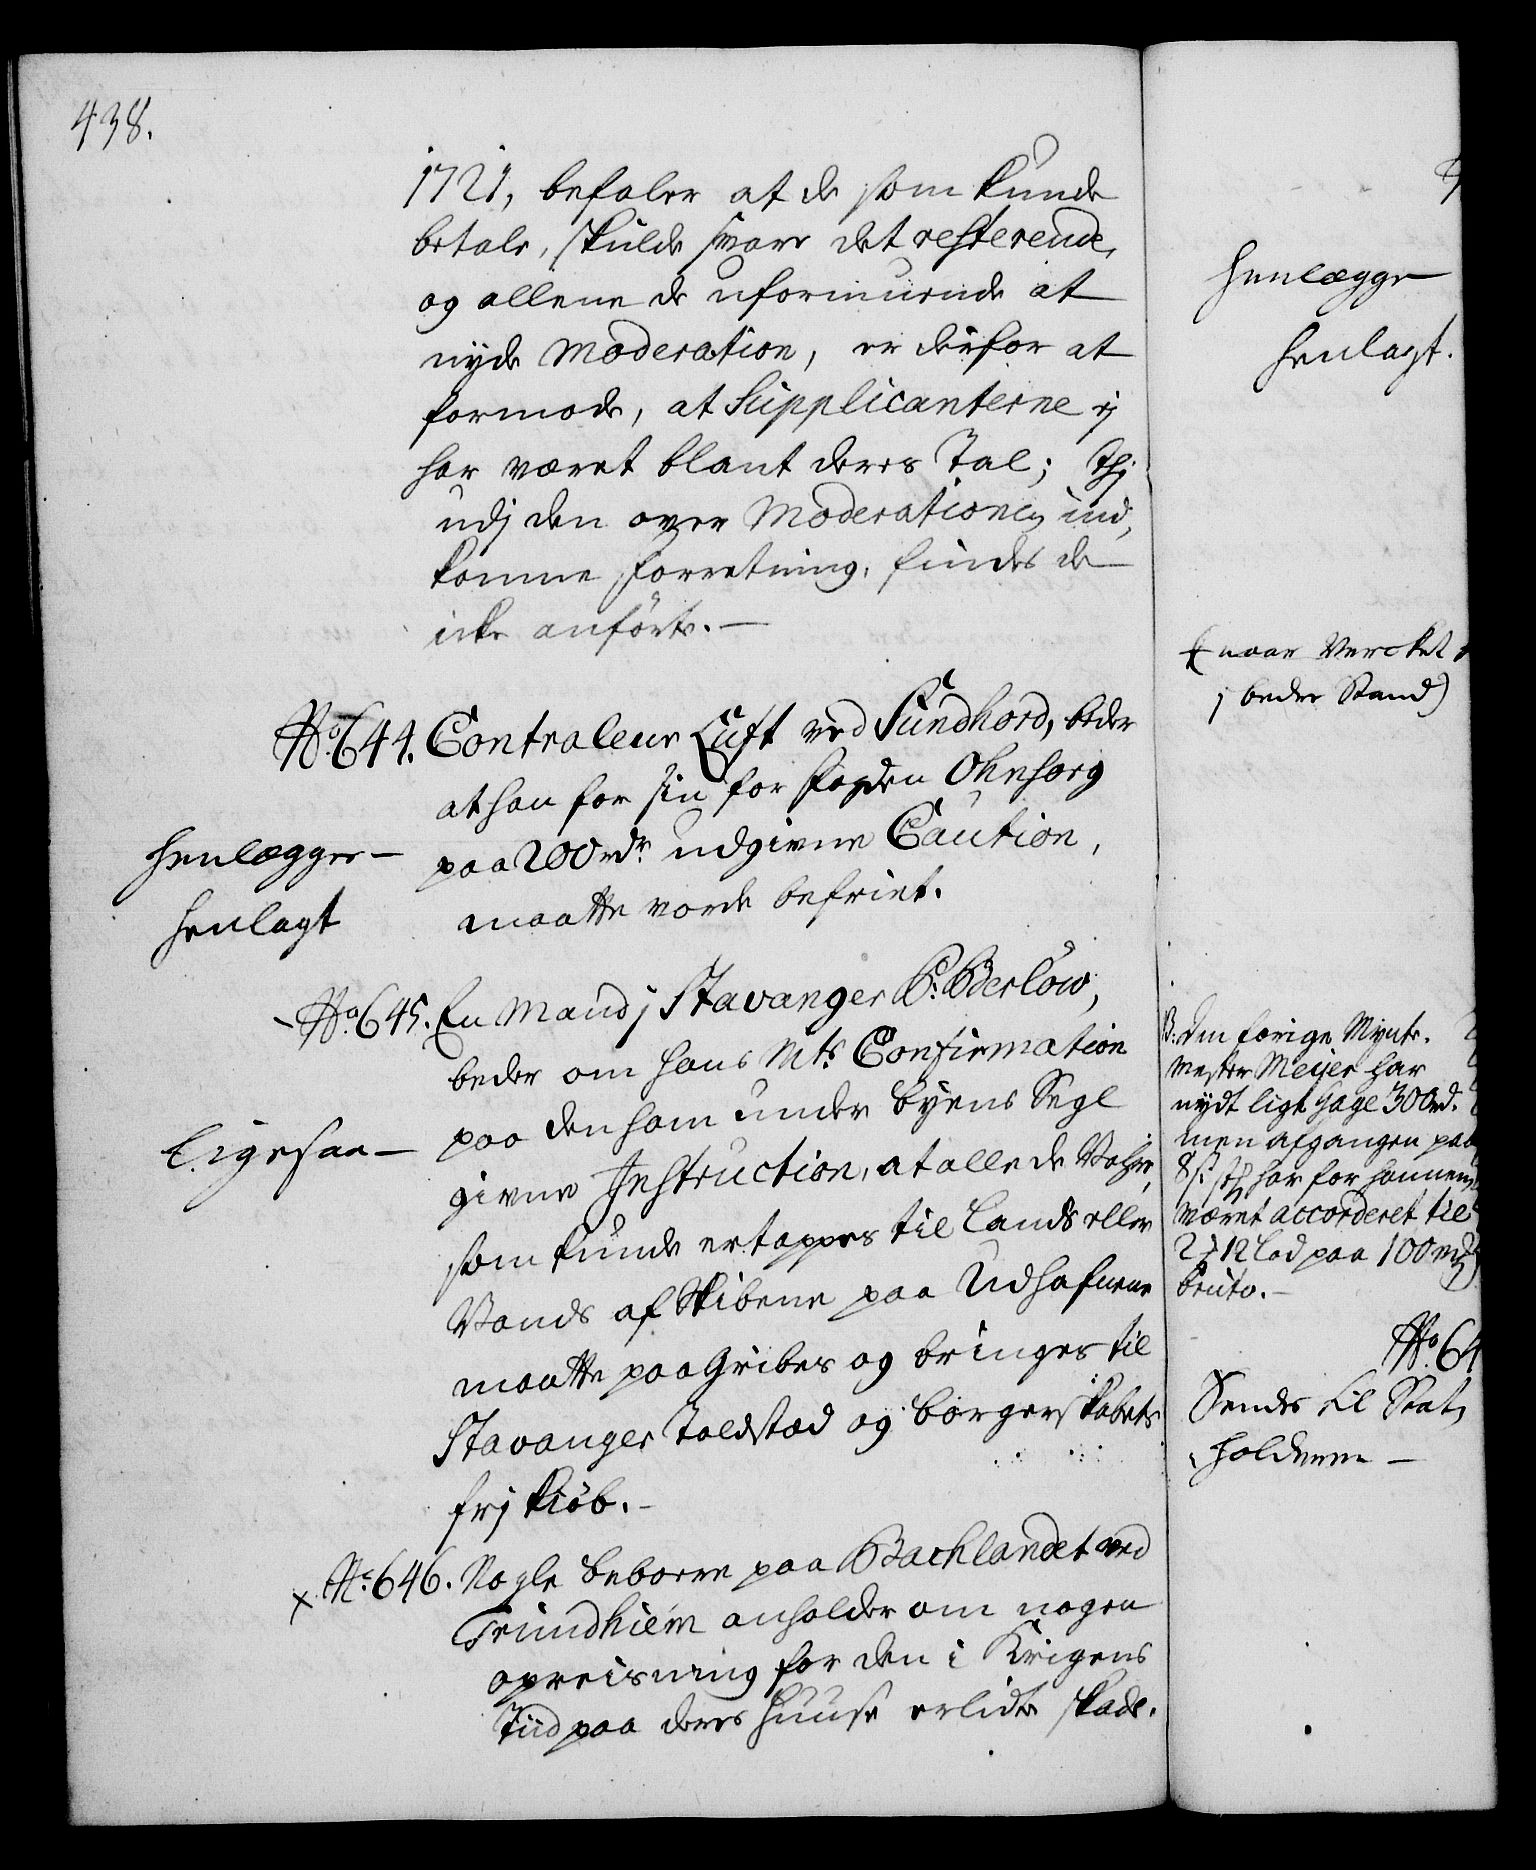 438.
1721, befaler at de som kunde
betale, skulde svare det resterende,
og allene de uformuende at
nyde Moderation, er derfor at
formode, at Supplicanterne ej
har været blant deres Tal; Thj
udj den over Moderationen ind,
komne forretning, findes de
icke anförte.—
No. 644. Contraleur Luft ved Sundhord, beder
at han for sin for fogden Ohnsorg
paa 200 rdr. udgivne Caution,
maatte vorde befriet.
Henlegges—
henlagt
No. 645. En Mand j Stavanger P. Bderlow,
beder om hans Mts. Confirmation
paa den ham under byens Segl
givne Instruction, at alle de Vahre,
som kunde ertappes til Lands eller
Vands af Skibene paa Udhafnene
maatte paa Gribes og bringes til
Stavanger Toldstad og borgerskabets
frj kiöb.—
Ligesaa—
x No. 646. Nogle beboere paa Bachlandet ved
Trundhiem anholder om nogen
opreisning for den i Krigens
Tiid paa deres Huuse erlidte skade.
Henlægge
henlagt.
(naar Vercket
j beder Stand)
den forige Mynte.
mester Meyer har
nydt ligt Gage 300 rd.
men afgangen paa
har for hannem
været accorderet til
2 12 Lod paa 100
bruto.—
No. 64
Sendes til Stat,
holderen—